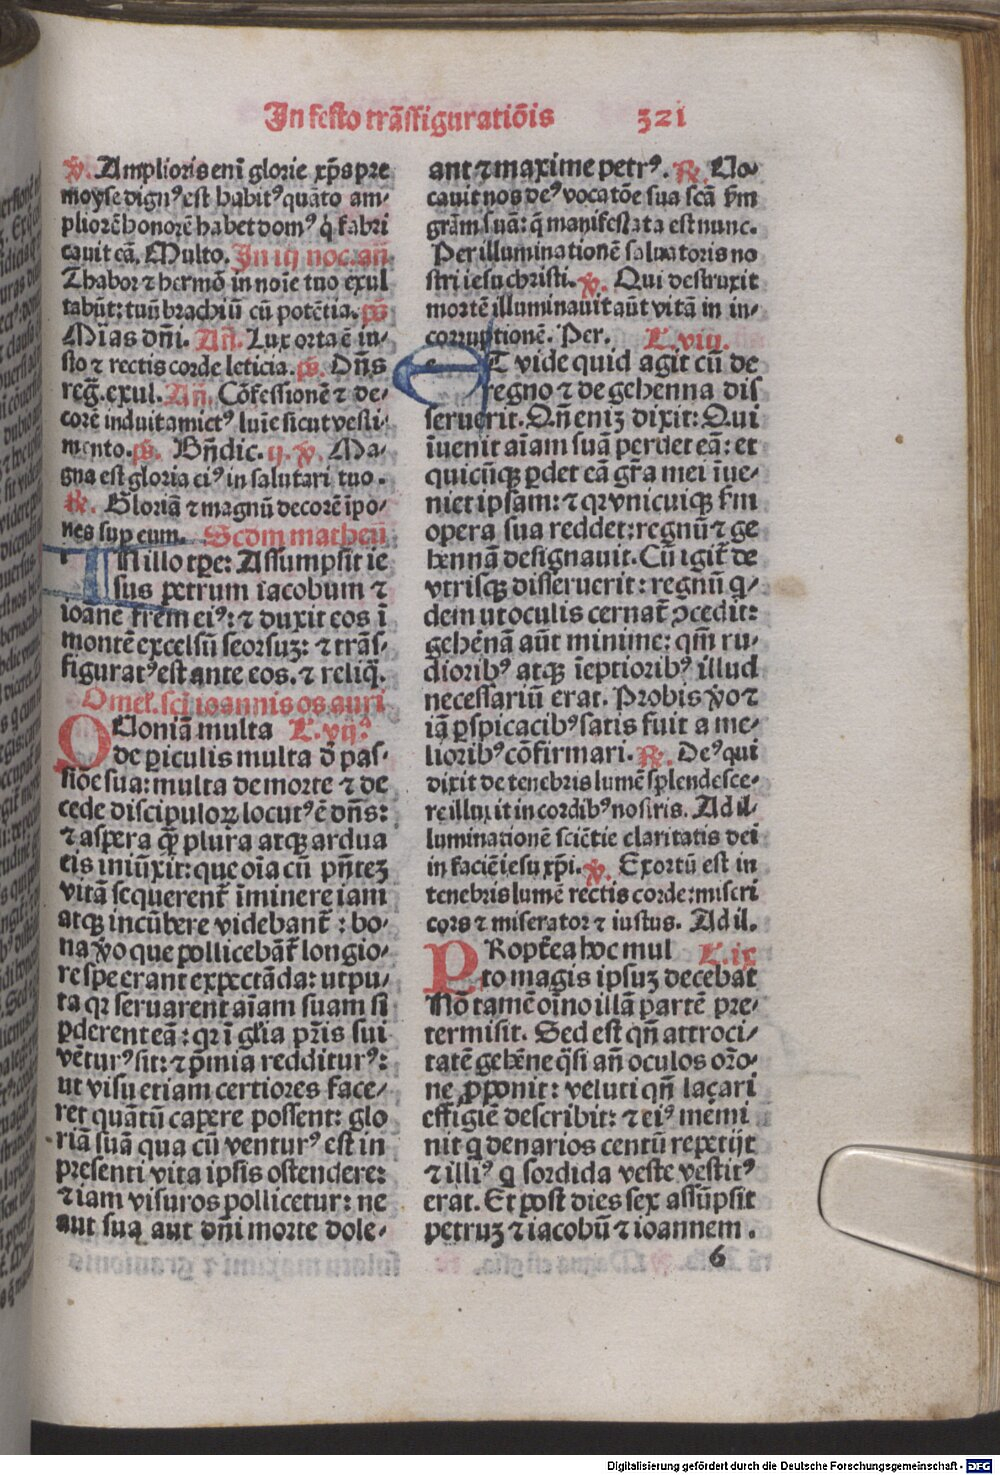 In festo trãsfiguratiõis 321
℣. Amplioris enĩ glorie xp̃s pre
moyse dignꝰ est habitꝰ quãto am-
pliorẽ honorẽ habet domꝰ q̇ fabri
cauit eã. Multo. In iij noc. añ
Thabor ⁊ hermõ in noĩe tuo exul
tabũt: tuũ brachiũ cũ potẽtia. p̃s
Mĩas dñi. Añ. Lux orta ẽ iu-
sto ⁊ rectis corde leticia. ps. Dñs
reg̃. exul. Añ. Cõfessionẽ ⁊ de-
corẽ induit amictꝰ lumĩe sicut vesti-
mento. ps. Bñdic. ij. ℣. Ma-
gna est gloria eiꝰ in salutari tuo.
℟. Gloriã ⁊ magnũ decorẽ ĩpo-
nes sup eum. Scdm̃ matheũ
IN illo tꝑe: Assumpsit ie
sus petrum iacobum ⁊
ioãnẽ frẽm eiꝰ: ⁊ duxit eos ĩ
montẽ excelsũ seorsuz: ⁊ trãs-
figuratꝰ est ante eos. ⁊ reliq̃.
Omel. scĩ ioannis os auri
QUoniã multa L. vijᵃ
de ꝑiculis multa d̃ pas-
sĩoe sua: multa de morte ⁊ de
cede discipuloꝝ locutꝰ ẽ dñs:
⁊ aspera q̃ȝ plura atqꝫ ardua
eis iniũxit: que oĩa cũ pñtez
vitã sequerent̃ ĩminere iam
atqꝫ incũbere videbant̃: bo-
na ꝟo que pollicebãt̃ longio-
re spe erant expectãda: utpu-
ta qꝛ seruarent aĩam suam si
ꝑderent eã: qꝛ ĩ gľia pr̃is sui
vẽturꝰ sit: ⁊ p̃mia redditurꝰ:
ut visu etiam certiores face-
ret quãtũ capere possent: glo
riã suã qua cũ venturꝰ est in
presenti vita ipsis ostendere:
⁊ iam visuros pollicetur: ne
aut sua aut dñi morte dole-
ant ⁊ maxime petrꝰ. ℟. Uo-
cauit nos deꝰ vocatõe sua scã ẜm
grãm suã: q̃ manifestata est nunc.
Per illuminationẽ saluatoris no
stri iesu christi. ℣. Qui destruxit
mortẽ illuminauit aũt vitã in in-
corruptionẽ. Per. L. viij.
ET vide quid agit cũ de
regno ⁊ de gehenna dis
seruerit. Qñ eniz dixit: Qui
ĩuenit aĩam suã perdet eã: et
quicũqꝫ ꝑdet eã gr̃a mei ĩue-
niet ipsam: ⁊ qꝛ vnicuiqꝫ ẜm
opera sua reddet: regnũ ⁊ ge
hennã designauit. Cũ igit̃ de
vtrisqꝫ disseruerit: regnũ q̇-
dem ut oculis cernat̃ ꝯcedit:
gehẽnã aũt minime: qm̃ ru-
dioribꝰ atqꝫ ĩeptioribꝰ illud
necessariũ erat. Probis ꝟo ⁊
iã ꝑspicacibꝰ satis fuit a me-
lioribꝰ cõfirmari. ℟. Deꝰ qui
dixit de tenebris lumẽ splendesce-
re illuxit in cordibꝰ nostris. Ad il-
luminationẽ sciẽtie claritatis dei
in faciẽ iesu xp̃i. ℣. Exortũ est in
tenebris lumẽ rectis corde: miseri
cors ⁊ miserator ⁊ iustus. Ad il.
PRopt̃ea hoc mul L. ix
to magis ipsuz decebat
Nõ tamẽ oĩno illã partẽ pre-
termisit. Sed est qñ attroci-
tatẽ gehẽne q̃si añ oculos orõ-
ne ꝓponit: veluti qñ laçari
effigiẽ describit: ⁊ eiꝰ memi
nit q̇ denarios centũ repetijt
⁊ illiꝰ q̇ sordida veste vestitꝰ
erat. Et post dies sex assũpsit
petruz ⁊ iacobũ ⁊ ioannem.
6
Digitalisierung gefördert durch die Deutsche Forschungsgemeinschaft - DFG